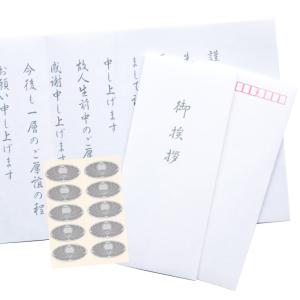 謹
生
まして
申し上げます
故人生前中のご厚
感謝申し上げます
今後も一層のご厚誼の程
お願い申し上げます
御挨拶